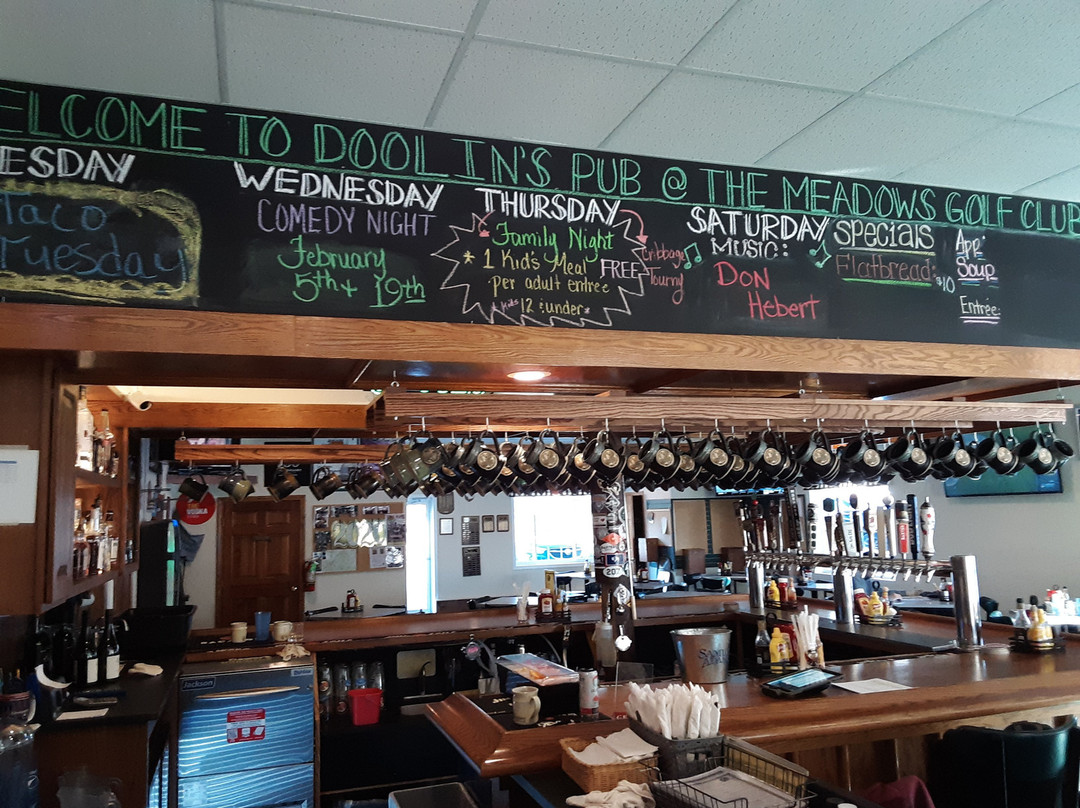 ELCOME TO DOOLIN'S PUB @ THE MEADOWS GOLF CLUB
ESDAY
Taco
Tuesday
WEDNESDAY
COMEDY NIGHT
February
5th + 19th
THURSDAY
Family Night
* 1 Kid's Meal FREE
per adult entrée
* Kids 12 & under *
Cribbage
Tourny
SATURDAY
MUSIC:
DON
Hebert
Specials
Flatbread:
$10
App:
Soup
Entrée:
VODKA
Jackson
207